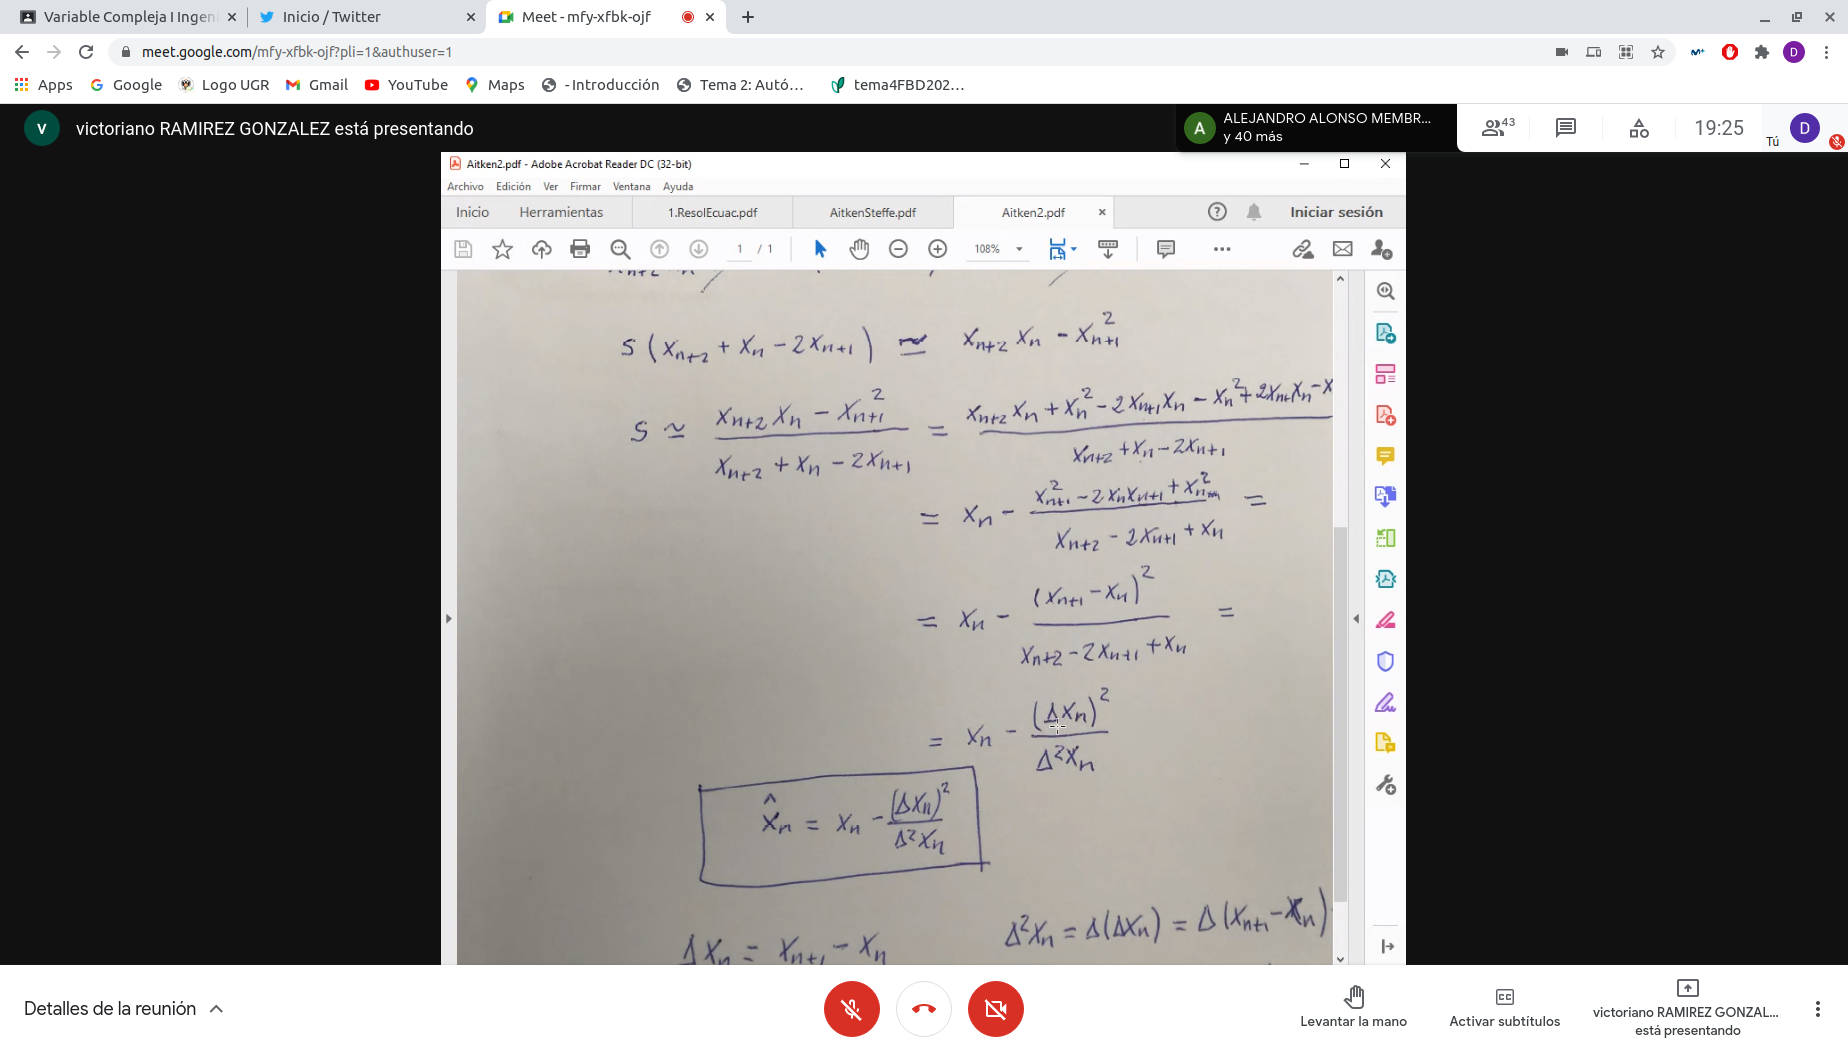 Variable Compleja I Ingeni
Inicio / Twitter
Meet - mfy-xfbk-ojf
meet.google.com/mfy-xfbk-ojf?pli=1&authuser=1
D
Apps
Google
Logo UGR
Gmail
YouTube
Maps
- Introducción
Tema 2: Autó...
tema4FBD202...
V
victoriano RAMIREZ GONZALEZ está presentando
A
ALEJANDRO ALONSO MEMBR...
y 40 más
43
19:25
Tú
D
Aitken2.pdf - Adobe Acrobat Reader DC (32-bit)
Archivo Edición Ver Firmar Ventana Ayuda
Inicio
Herramientas
1.ResolEcuac.pdf
AitkenSteffe.pdf
Aitken2.pdf
Iniciar sesión
1 / 1
108%
S (x_{n+2} + x_n - 2x_{n+1}) ≃ x_{n+2} x_n - x_{n+1}^2
S ≃ (x_{n+2} x_n - x_{n+1}^2) / (x_{n+2} + x_n - 2x_{n+1}) = (x_{n+2} x_n + x_n^2 - 2x_{n+1} x_n - x_n^2 + 2x_{n+1} x_n - x) / (x_{n+2} + x_n - 2x_{n+1})
= x_n - (x_{n+1}^2 - 2x_n x_{n+1} + x_n^2) / (x_{n+2} - 2x_{n+1} + x_n) =
= x_n - (x_{n+1} - x_n)^2 / (x_{n+2} - 2x_{n+1} + x_n) =
= x_n - (Δx_n)^2 / Δ^2 x_n
x̂_n = x_n - (Δx_n)^2 / Δ^2 x_n
Δ^2 x_n = Δ(Δx_n) = Δ(x_{n+1} - x_n)
Δx_n = x_{n+1} - x_n
Detalles de la reunión
Levantar la mano
CC
Activar subtítulos
victoriano RAMIREZ GONZAL...
está presentando